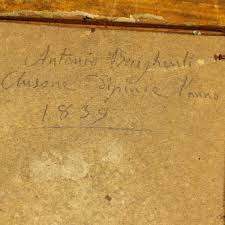 Antonio Brighenti
Clusone Dipinse l'anno
1839